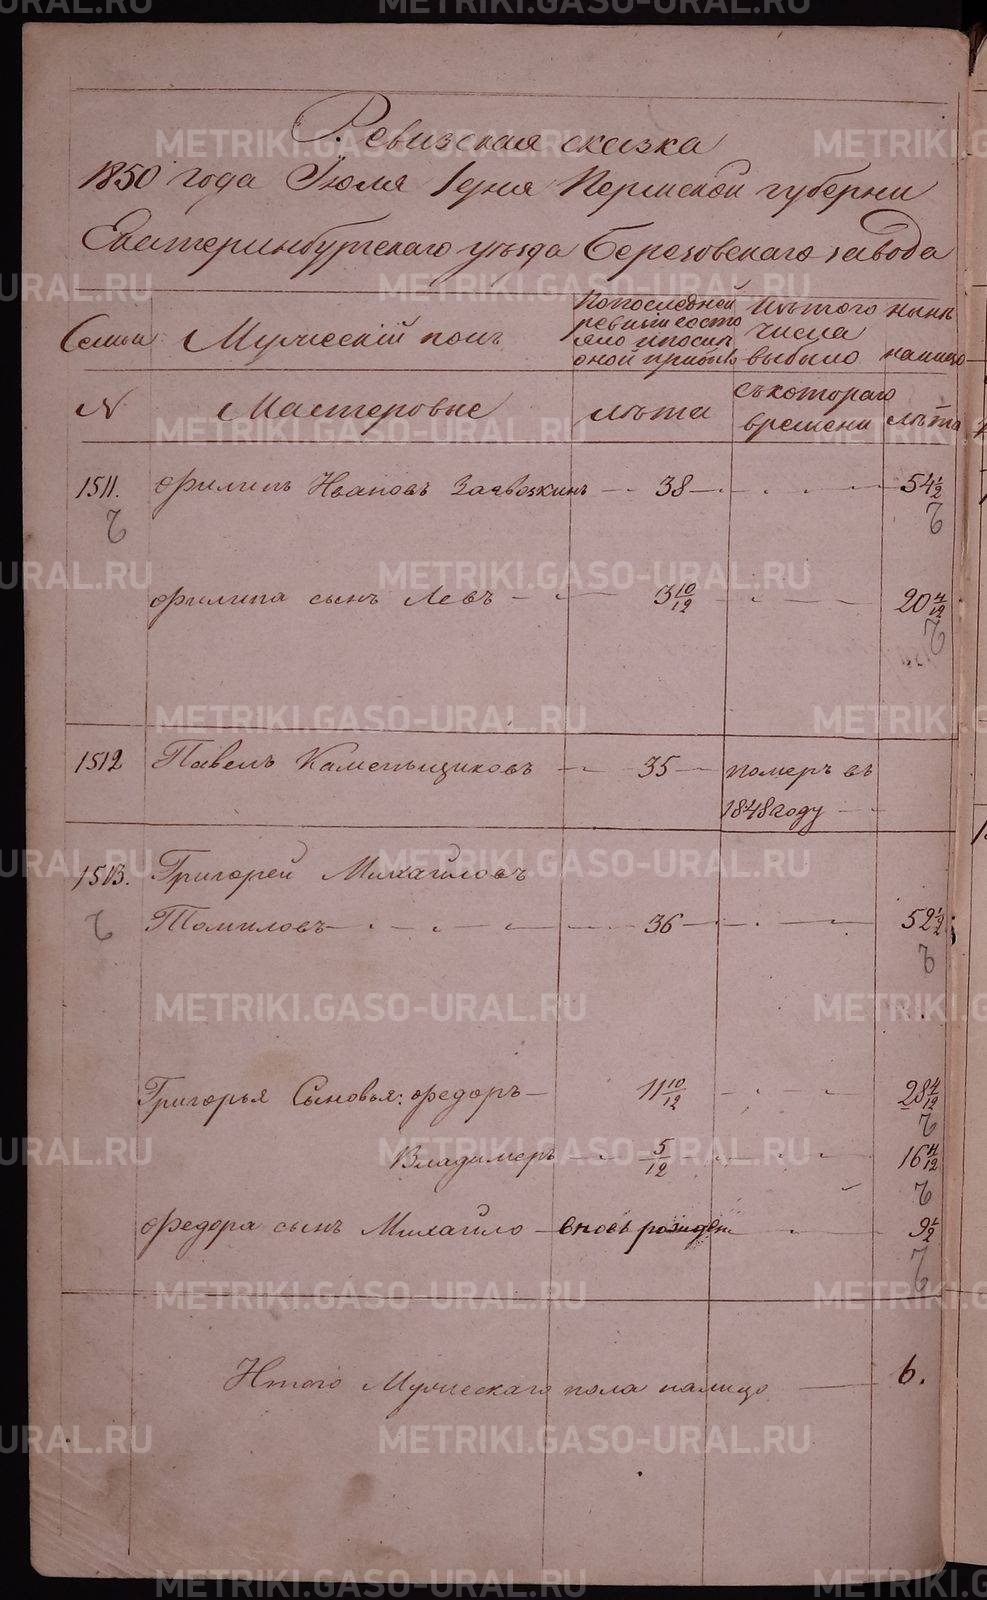 Ревизская сказка
1850 года Июля 1 дня Пермской губерни
Екатеринбургскаго уѣзда Березовскаго завода
Семьи
Мужескій полъ
По последней
ревизіи состо
яло и после
оной прибыло
Изъ того
числа
выбыло
нынѣ
налицо
N
Мастеровые
лѣта
съ котораго
времени
лѣта
1511. Филипъ Ивановъ 38 54 1/2
Филипа сынъ Левъ 3 10/12 20 4/12
1512 Павелъ Каменьщиковъ 35 померъ въ
1848 году
1513. Григорей Михайловъ
Томиловъ 36 52 1/2
Григорья Сыновья: Федоръ 11 10/12 28 4/12
Владимеръ 5/12 16 4/12
Федора сынъ Михайло вновь рожден 9 1/2
Итого Мужескаго пола налицо 6.
METRIKI.GASO-URAL.RU